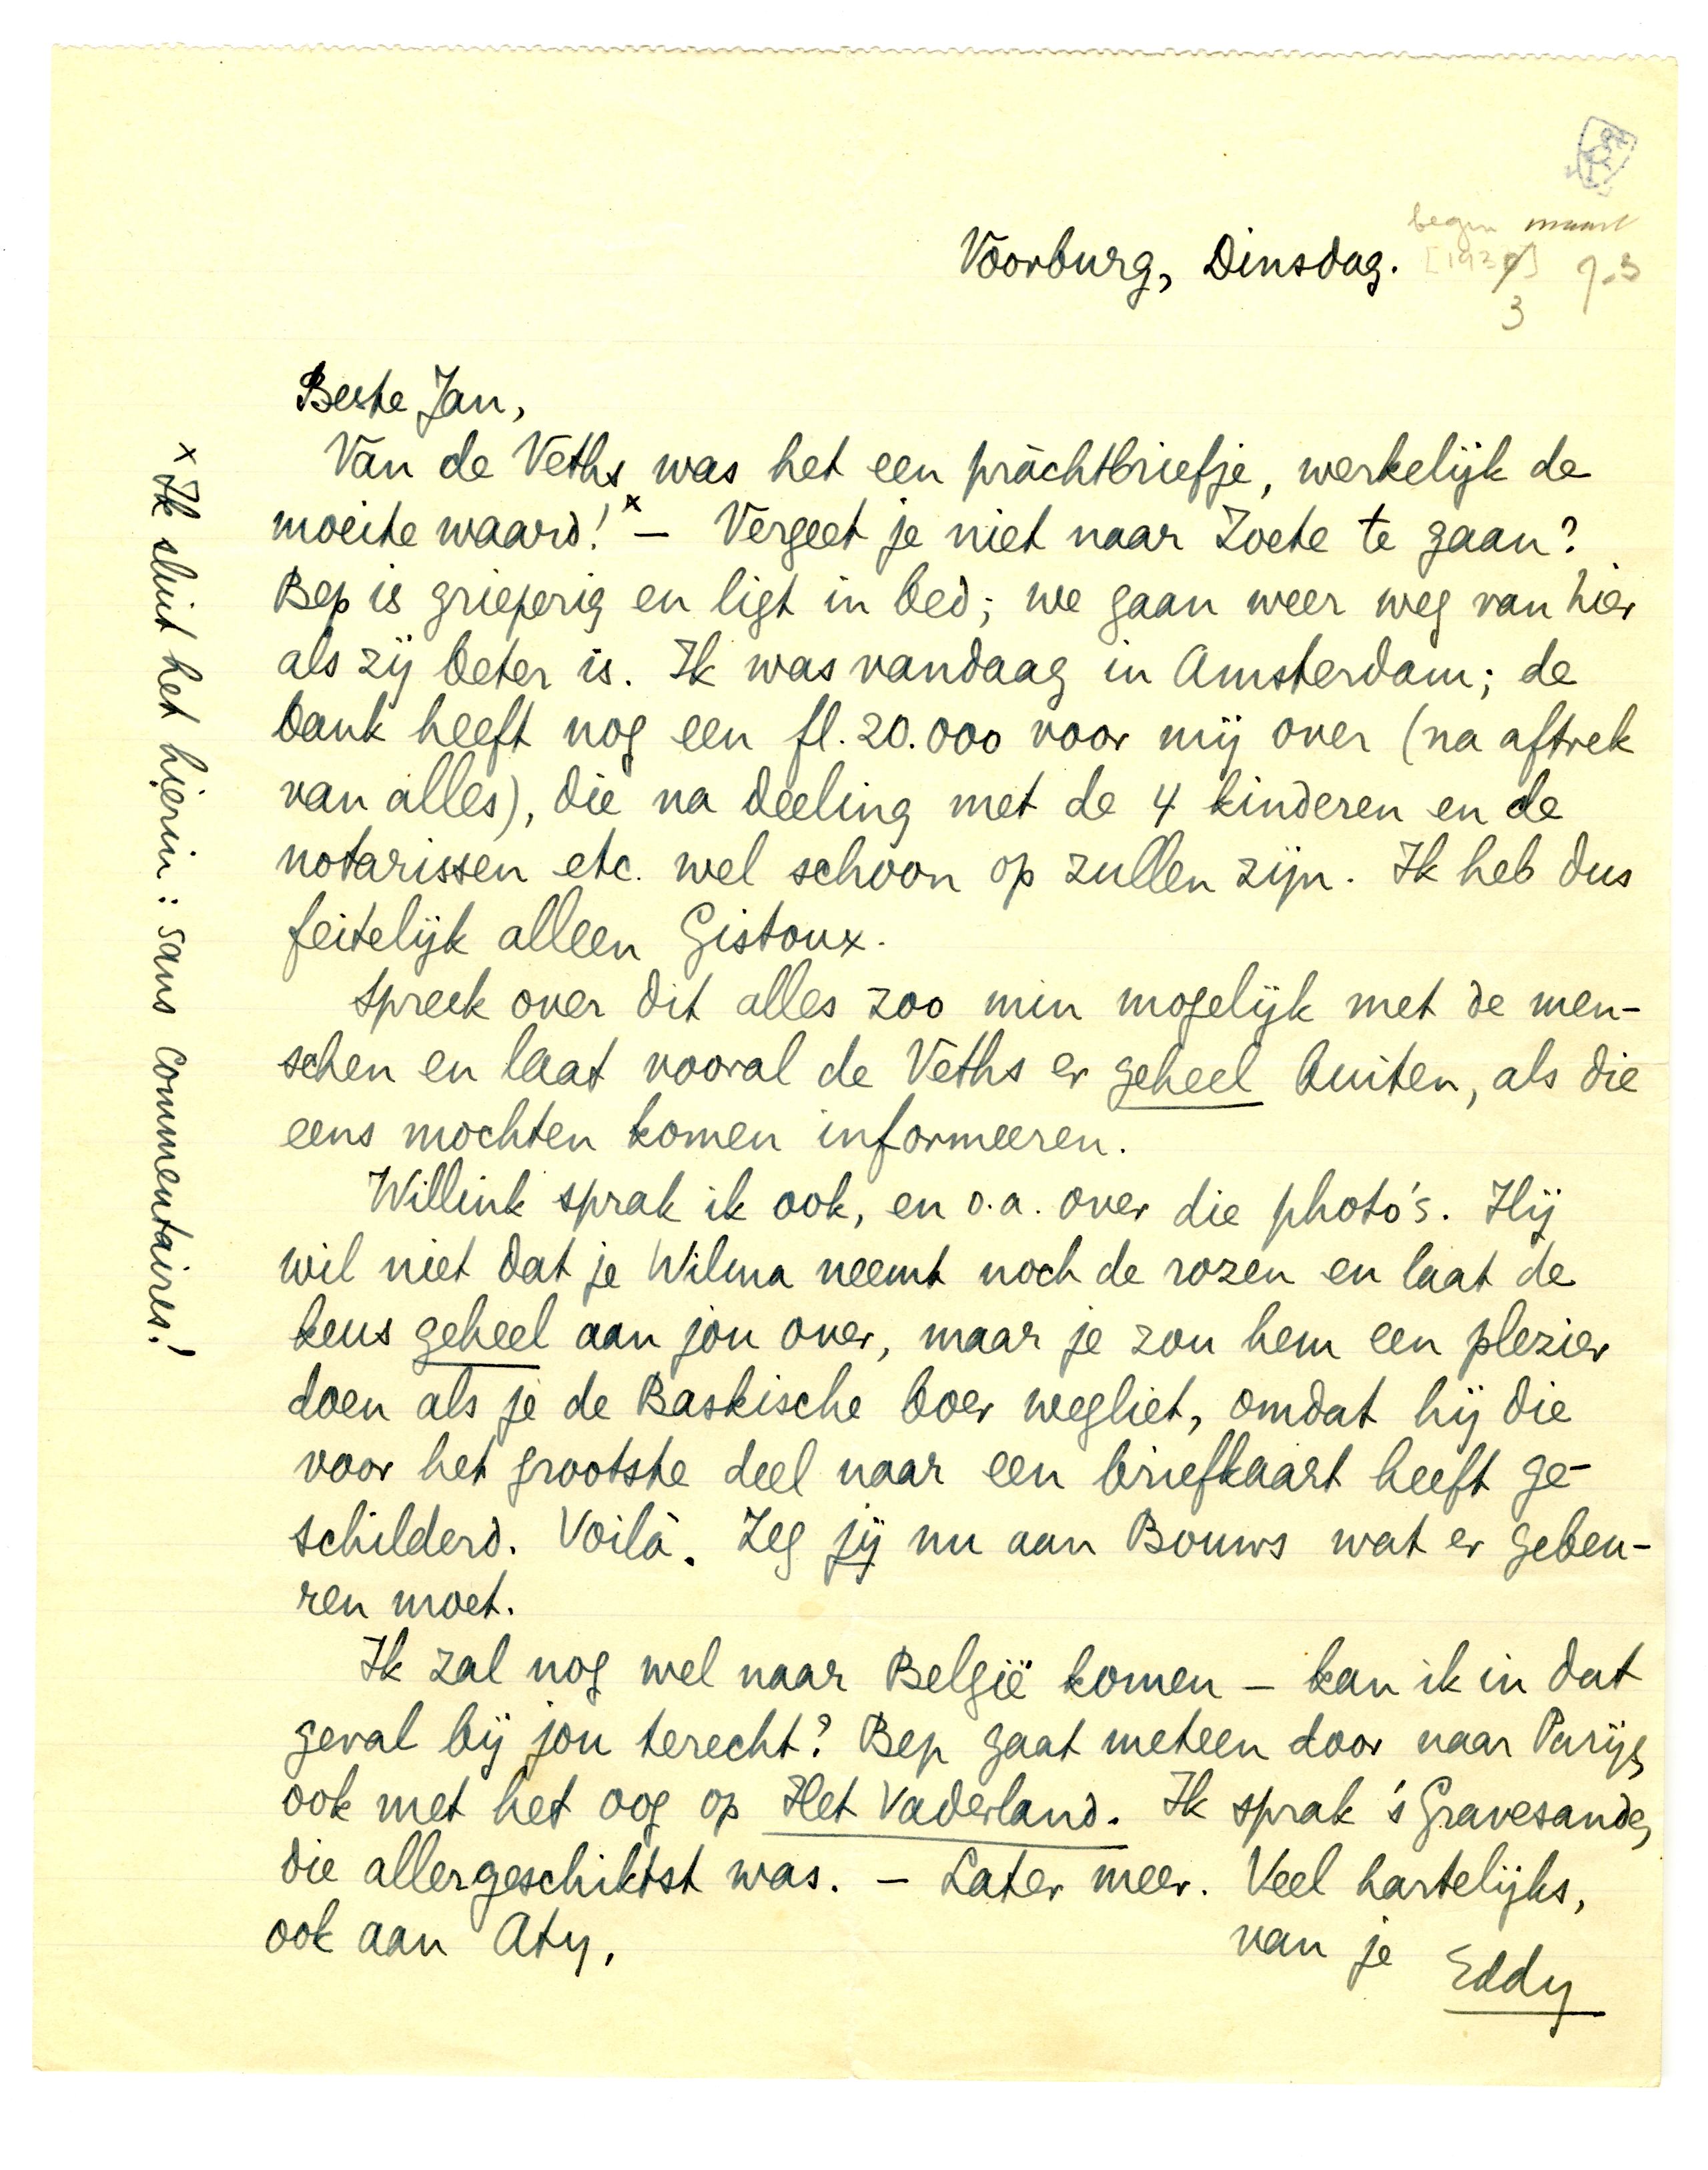 begin maart
Voorburg, Dinsdag. [1932]
3
Beste Jan,
Van de Veths was het een pràchtbriefje, werkelijk de
moeite waard! x — Vergeet je niet naar Zoete te gaan?
Bep is grieperig en ligt in bed; we gaan weer weg van hier
als zij beter is. Ik was vandaag in Amsterdam; de
bank heeft nog een fl. 20.000 voor mij over (na aftrek
van alles), die na deeling met de 4 kinderen en de
notarissen etc. wel schoon op zullen zijn. Ik heb dus
feitelijk alleen Gistoux.
Spreek over dit alles zoo min mogelijk met de men-
schen en laat vooral de Veths er geheel buiten, als die
eens mochten komen informeeren.
Willink sprak ik ook, en o.a. over die photo's. Hij
wil niet dat je Wilma neemt noch de rozen en laat de
keus geheel aan jou over, maar je zou hem een plezier
doen als je de Baskische boer wegliet, omdat hij die
voor het grootste deel naar een briefkaart heeft ge-
schilderd. Voilà. Zeg jij nu aan Bouws wat er gebeu-
ren moet.
Ik zal nog wel naar België komen — kan ik in dat
geval bij jou terecht? Bep gaat meteen door naar Parijs,
ook met het oog op Het Vaderland. Ik sprak 's Gravesande,
die allergeschiktst was. — Later meer. Veel hartelijks,
ook aan Aty,
van je Eddy
x Ik sluit het hierin: sans commentaires!